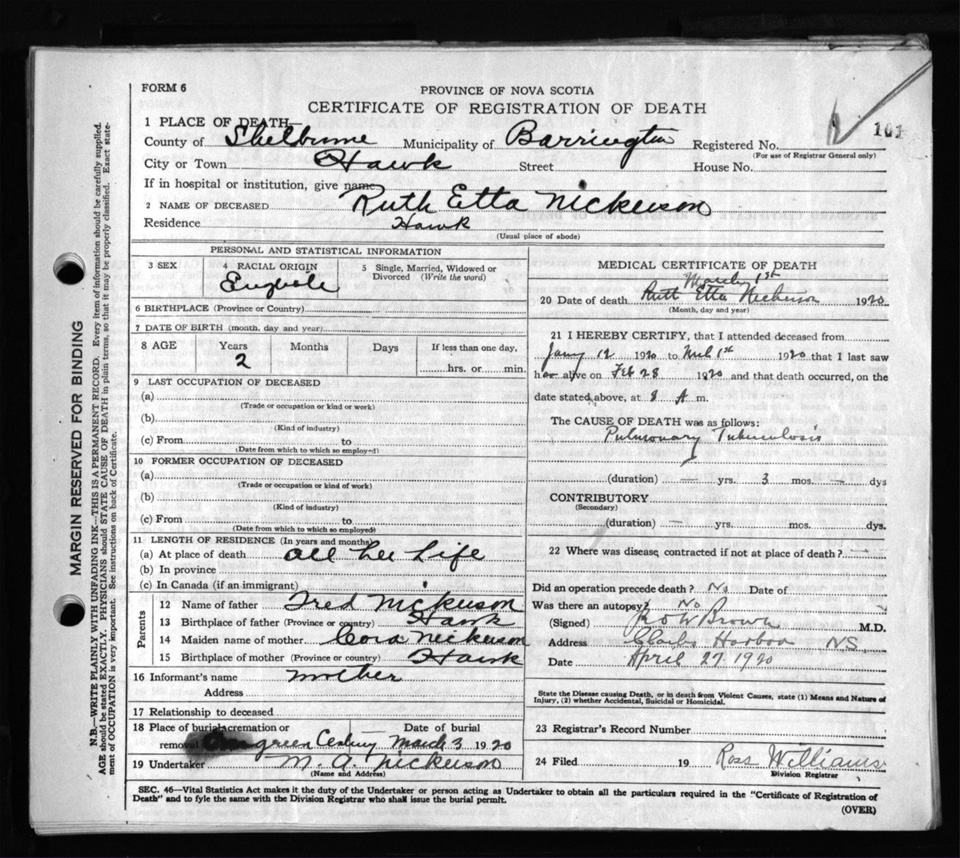 FORM 6
PROVINCE OF NOVA SCOTIA
CERTIFICATE OF REGISTRATION OF DEATH
1 PLACE OF DEATH—
County of Shelburne Municipality of Barrington Registered No. 101
(For use of Registrar General only)
City or Town Hawk Street House No.
If in hospital or institution, give name
2 NAME OF DECEASED Ruth Etta Nickerson
Residence Hawk
(Usual place of abode)
PERSONAL AND STATISTICAL INFORMATION
3 SEX
4 RACIAL ORIGIN
5 Single, Married, Widowed or Divorced (Write the word)
6 BIRTHPLACE (Province or Country)
7 DATE OF BIRTH (month, day and year)
8 AGE Years Months Days If less than one day,
2 hrs. or min.
9 LAST OCCUPATION OF DECEASED
(a)
(Trade or occupation or kind or work)
(b)
(Kind of industry)
(c) From to
(Date from which to which so employed)
10 FORMER OCCUPATION OF DECEASED
(a)
(Trade or occupation or kind of work)
(b)
(Kind of industry)
(c) From to
(Date from which to which so employed)
11 LENGTH OF RESIDENCE (In years and months)
(a) At place of death all her Life
(b) In province
(c) In Canada (if an immigrant)
Parents
12 Name of father Fred Nickerson
13 Birthplace of father (Province or country) Hawk
14 Maiden name of mother Cora Nickerson
15 Birthplace of mother (Province or country) Hawk
16 Informant's name mother
Address
17 Relationship to deceased
18 Place of burial, cremation or Date of burial
removal March 3 1920
19 Undertaker M. A. Nickerson
(Name and Address)
MEDICAL CERTIFICATE OF DEATH
1st
20 Date of death Ruth Etta Nickerson 1920
(Month, day and year)
21 I HEREBY CERTIFY, that I attended deceased from
Jany 12 1920 to Mch 1st 1920 that I last saw
her alive on Feb 28 1920 and that death occurred, on the
date stated above, at 8 A m.
The CAUSE OF DEATH was as follows:
Pulmonary Tuberculosis
(duration) — yrs. 3 mos. — dys
CONTRIBUTORY
(Secondary)
(duration) — yrs. mos. dys.
22 Where was disease contracted if not at place of death?
Did an operation precede death? No Date of
Was there an autopsy? No
(Signed) Brown M.D.
Address Clarks Harbor N.S.
Date April 27 1920
State the Disease causing Death, or in death from Violent Causes, state (1) Means and Nature of
Injury, (2) whether Accidental, Suicidal or Homicidal.
23 Registrar's Record Number
24 Filed 19 Ross Williams
Division Registrar
SEC. 46—Vital Statistics Act makes it the duty of the Undertaker or person acting as Undertaker to obtain all the particulars required in the "Certificate of Registration of
Death" and to fyle the same with the Division Registrar who shall issue the burial permit.
(OVER)
MARGIN RESERVED FOR BINDING
N.B.—WRITE PLAINLY WITH UNFADING INK—THIS IS A PERMANENT RECORD. Every item of information should be carefully supplied.
AGE should be stated EXACTLY. PHYSICIANS should STATE CAUSE OF DEATH in plain terms, so that it may be properly classified. Exact state-
ment of OCCUPATION is very important. See instructions on back of Certificate.